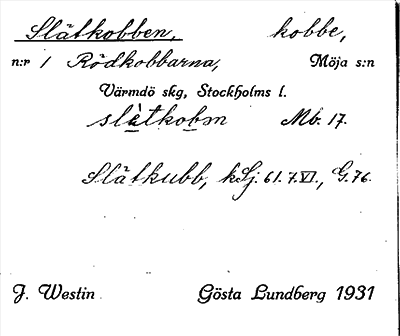 Slätkobben, kobbe,
n:r 1 Rödkobbarna, Möja s:n
Värmdö skg, Stockholms l.
slàtkobm Mb. 17.
Slätkubb, kSj. 61. 7.VI., G. 76.
J. Westin Gösta Lundberg 1931